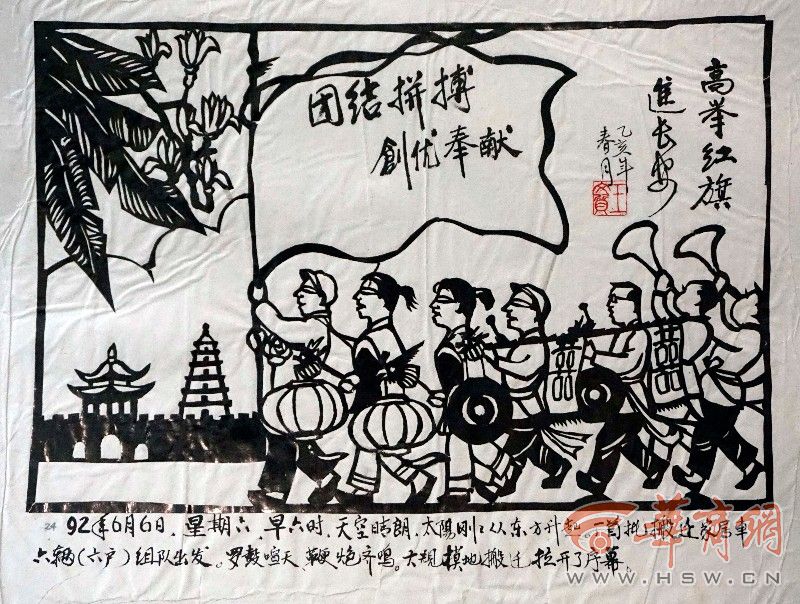 团结拼搏
創优奉献
高举红旗
進长安
乙亥年
春月
24 92年6月6日，星期六，早六时，天空晴朗，太陽刚〻从东方升起，首批搬迁家属車
六辆（六户）组队出发。罗鼓喧天，鞭炮齐鸣。大规模地搬迁，拉开了序幕。
華商網
WWW.HSW.CN